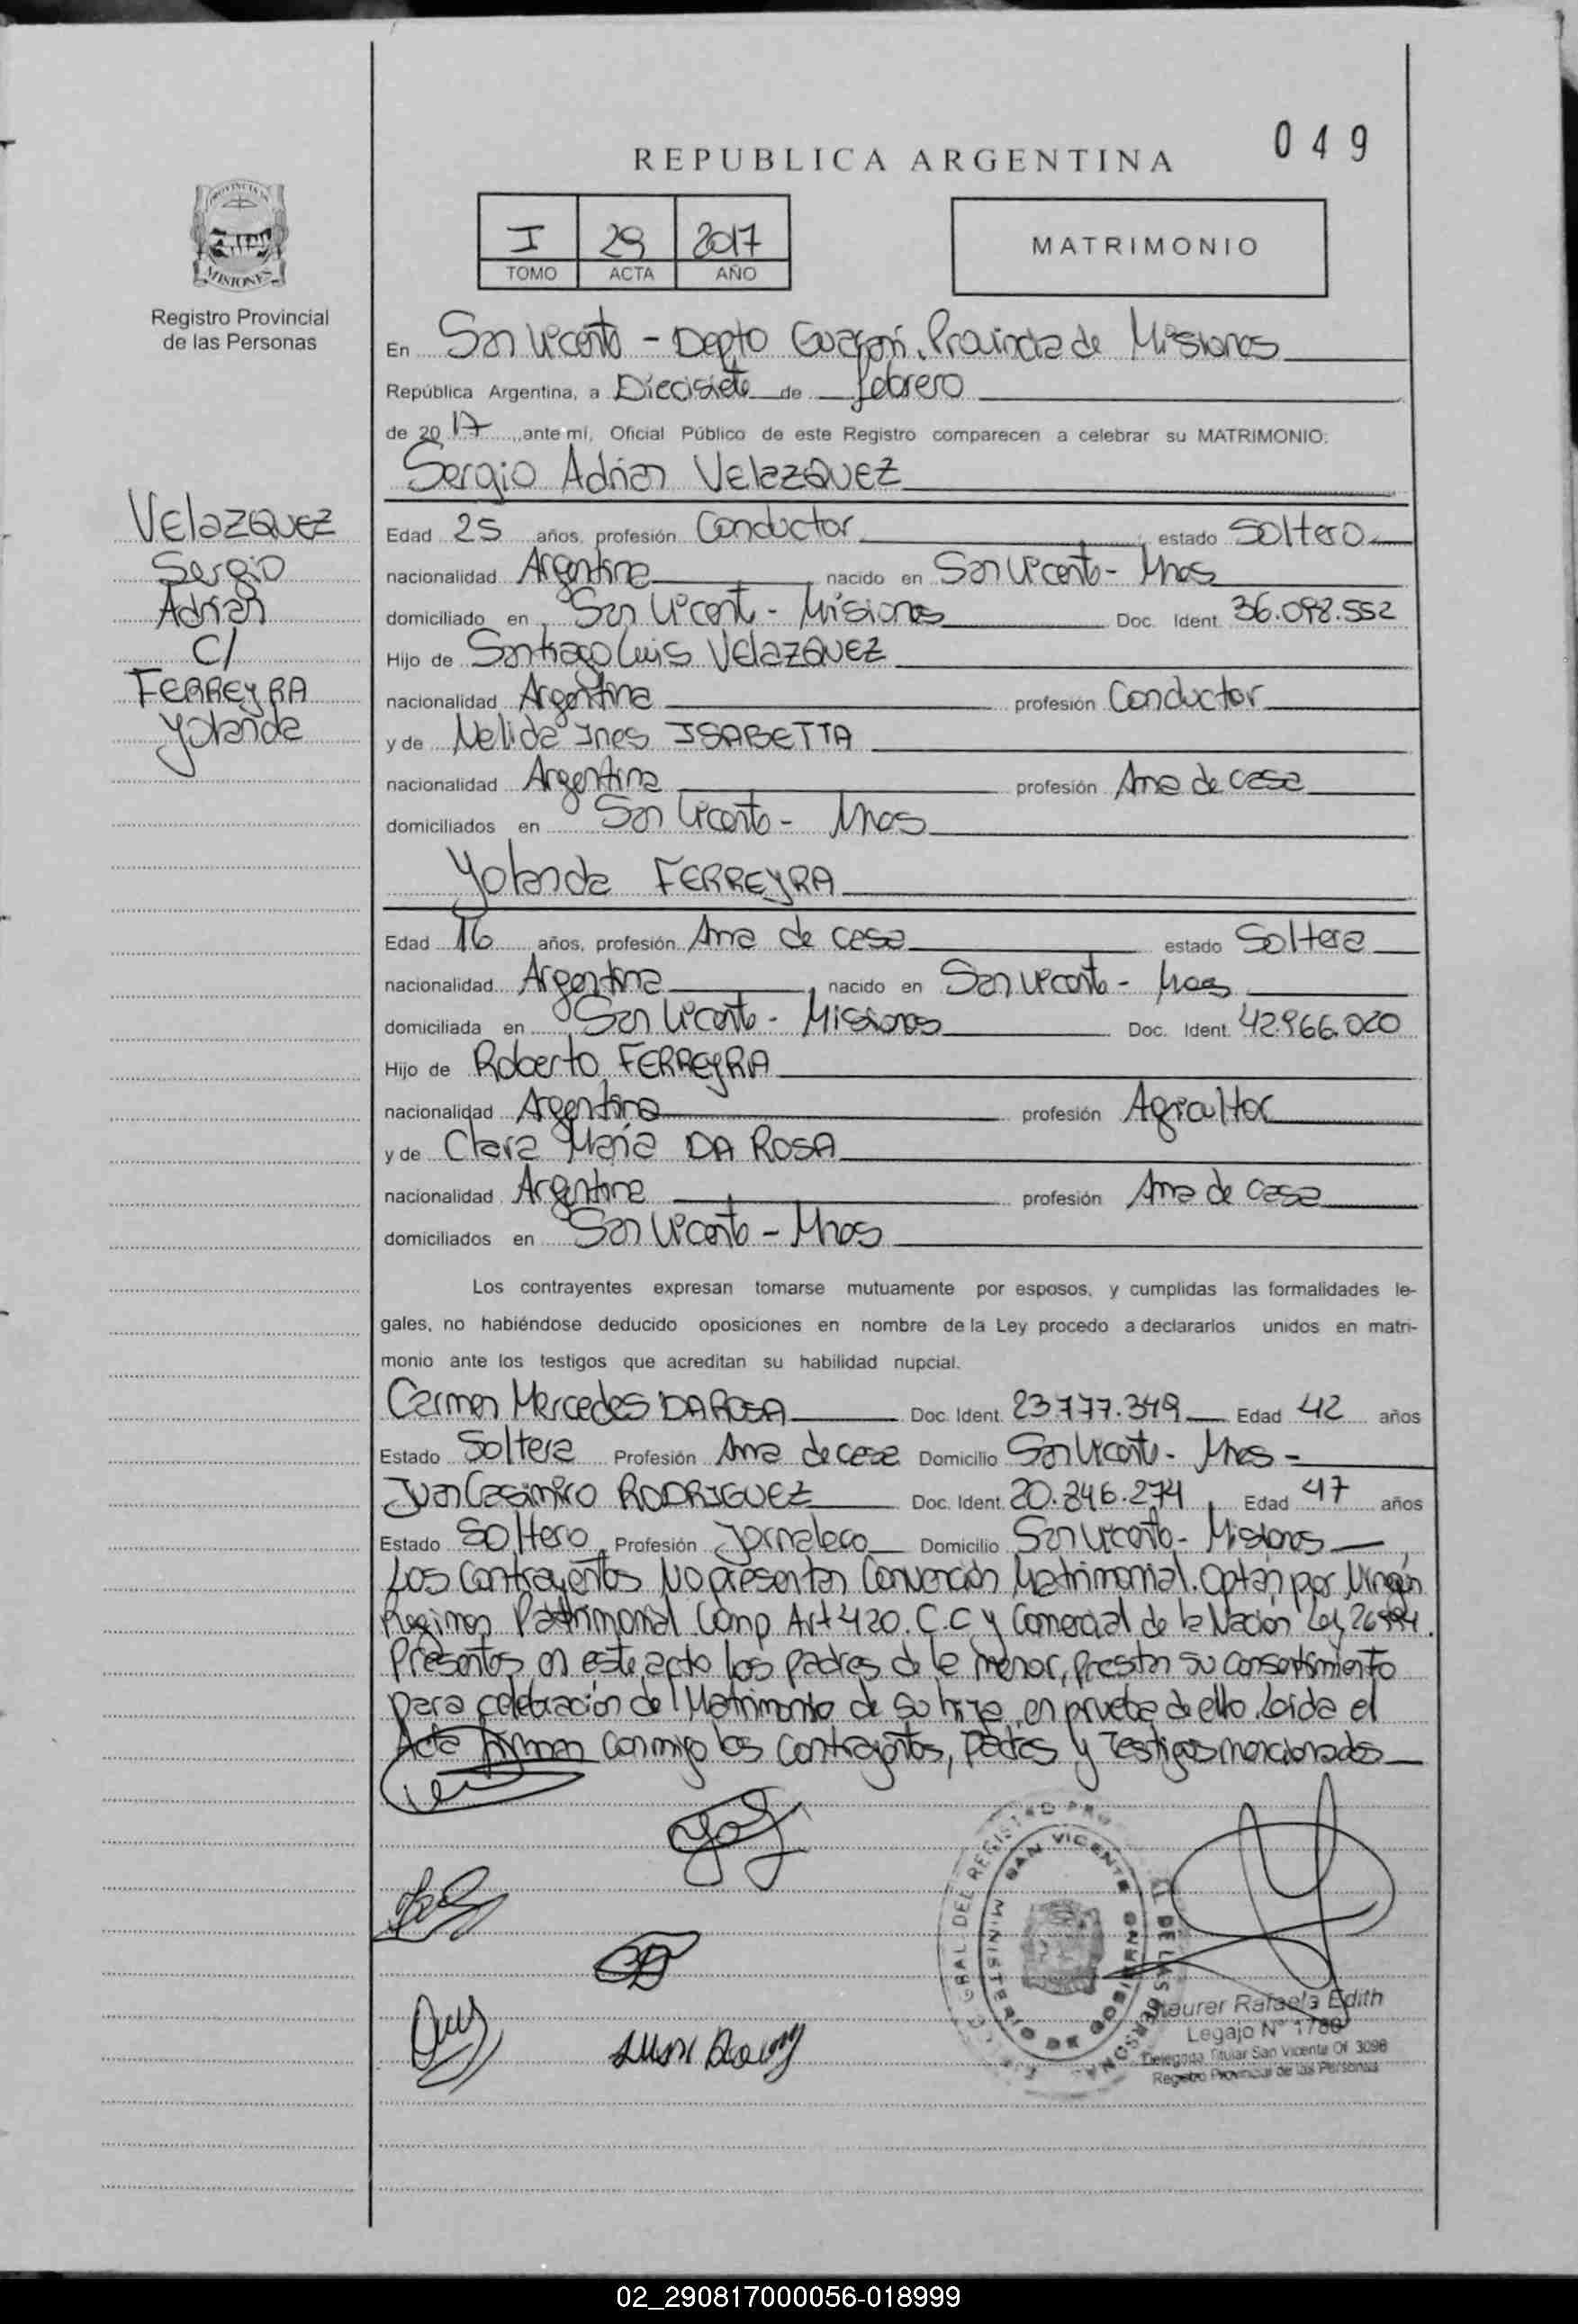 049
REPUBLICA ARGENTINA
I 29 2017
TOMO ACTA AÑO
MATRIMONIO
PROVINCIA DE
MISIONES
Registro Provincial
de las Personas
Velazquez
Sergio
Adrián
C/
FERREYRA
Yolanda
En San Vicente - Depto Guaraní, Provincia de Misiones
República Argentina, a Diecisiete de febrero
de 2017, ante mí, Oficial Público de este Registro comparecen a celebrar su MATRIMONIO:
Sergio Adrian VELAZQUEZ
Edad 25 años, profesión Conductor estado Soltero
nacionalidad Argentina, nacido en San Vicente - Mnes
domiciliado en San Vicente - Misiones Doc. Ident. 36.098.552
Hijo de Santiago Luis VELAZQUEZ
nacionalidad Argentina profesión Conductor
y de Nelida Ines ISABETTA
nacionalidad Argentina profesión Ama de casa
domiciliados en San Vicente - Mnes
Yolanda FERREYRA
Edad 16 años, profesión Ama de casa estado Soltera
nacionalidad Argentina, nacido en San Vicente - Mnes
domiciliada en San Vicente - Misiones Doc. Ident. 42.966.020
Hijo de Roberto FERREYRA
nacionalidad Argentina profesión Agricultor
y de Clara Maria DA ROSA
nacionalidad Argentina profesión Ama de casa
domiciliados en San Vicente - Mnes
Los contrayentes expresan tomarse mutuamente por esposos, y cumplidas las formalidades le-
gales, no habiéndose deducido oposiciones en nombre de la Ley procedo a declararlos unidos en matri-
monio ante los testigos que acreditan su habilidad nupcial.
Carmen Mercedes DA ROSA Doc. Ident. 23.777.349 Edad 42 años
Estado Soltera Profesión Ama de casa Domicilio San Vicente - Mnes -
Juan Casimiro RODRIGUEZ Doc. Ident. 20.846.274, Edad 47 años
Estado Soltero, Profesión Jornalero Domicilio San Vicente - Misiones
Los Contrayentes No presentan Convención Matrimonial. Optan por Ningún
Regimen Patrimonial Comp Art 420. C.C y Comercial de la Nación Ley 26994.
Presentes en este acto los padres de la menor, prestan su consentimiento
para celebración del Matrimonio de su hija, en prueba de ello. Leída el
Acta firman conmigo los contrayentes, Padres y Testigos mencionados
GRAL DEL REGISTRO PRO
SAN VICENTE
MINISTERIO DE GOBIERNO
DE LAS PERSONAS
Rafaela Edith
Legajo N°
Delegada Titular San Vicente Of 3098
Registro Provincial de las Personas
02_290817000056-018999